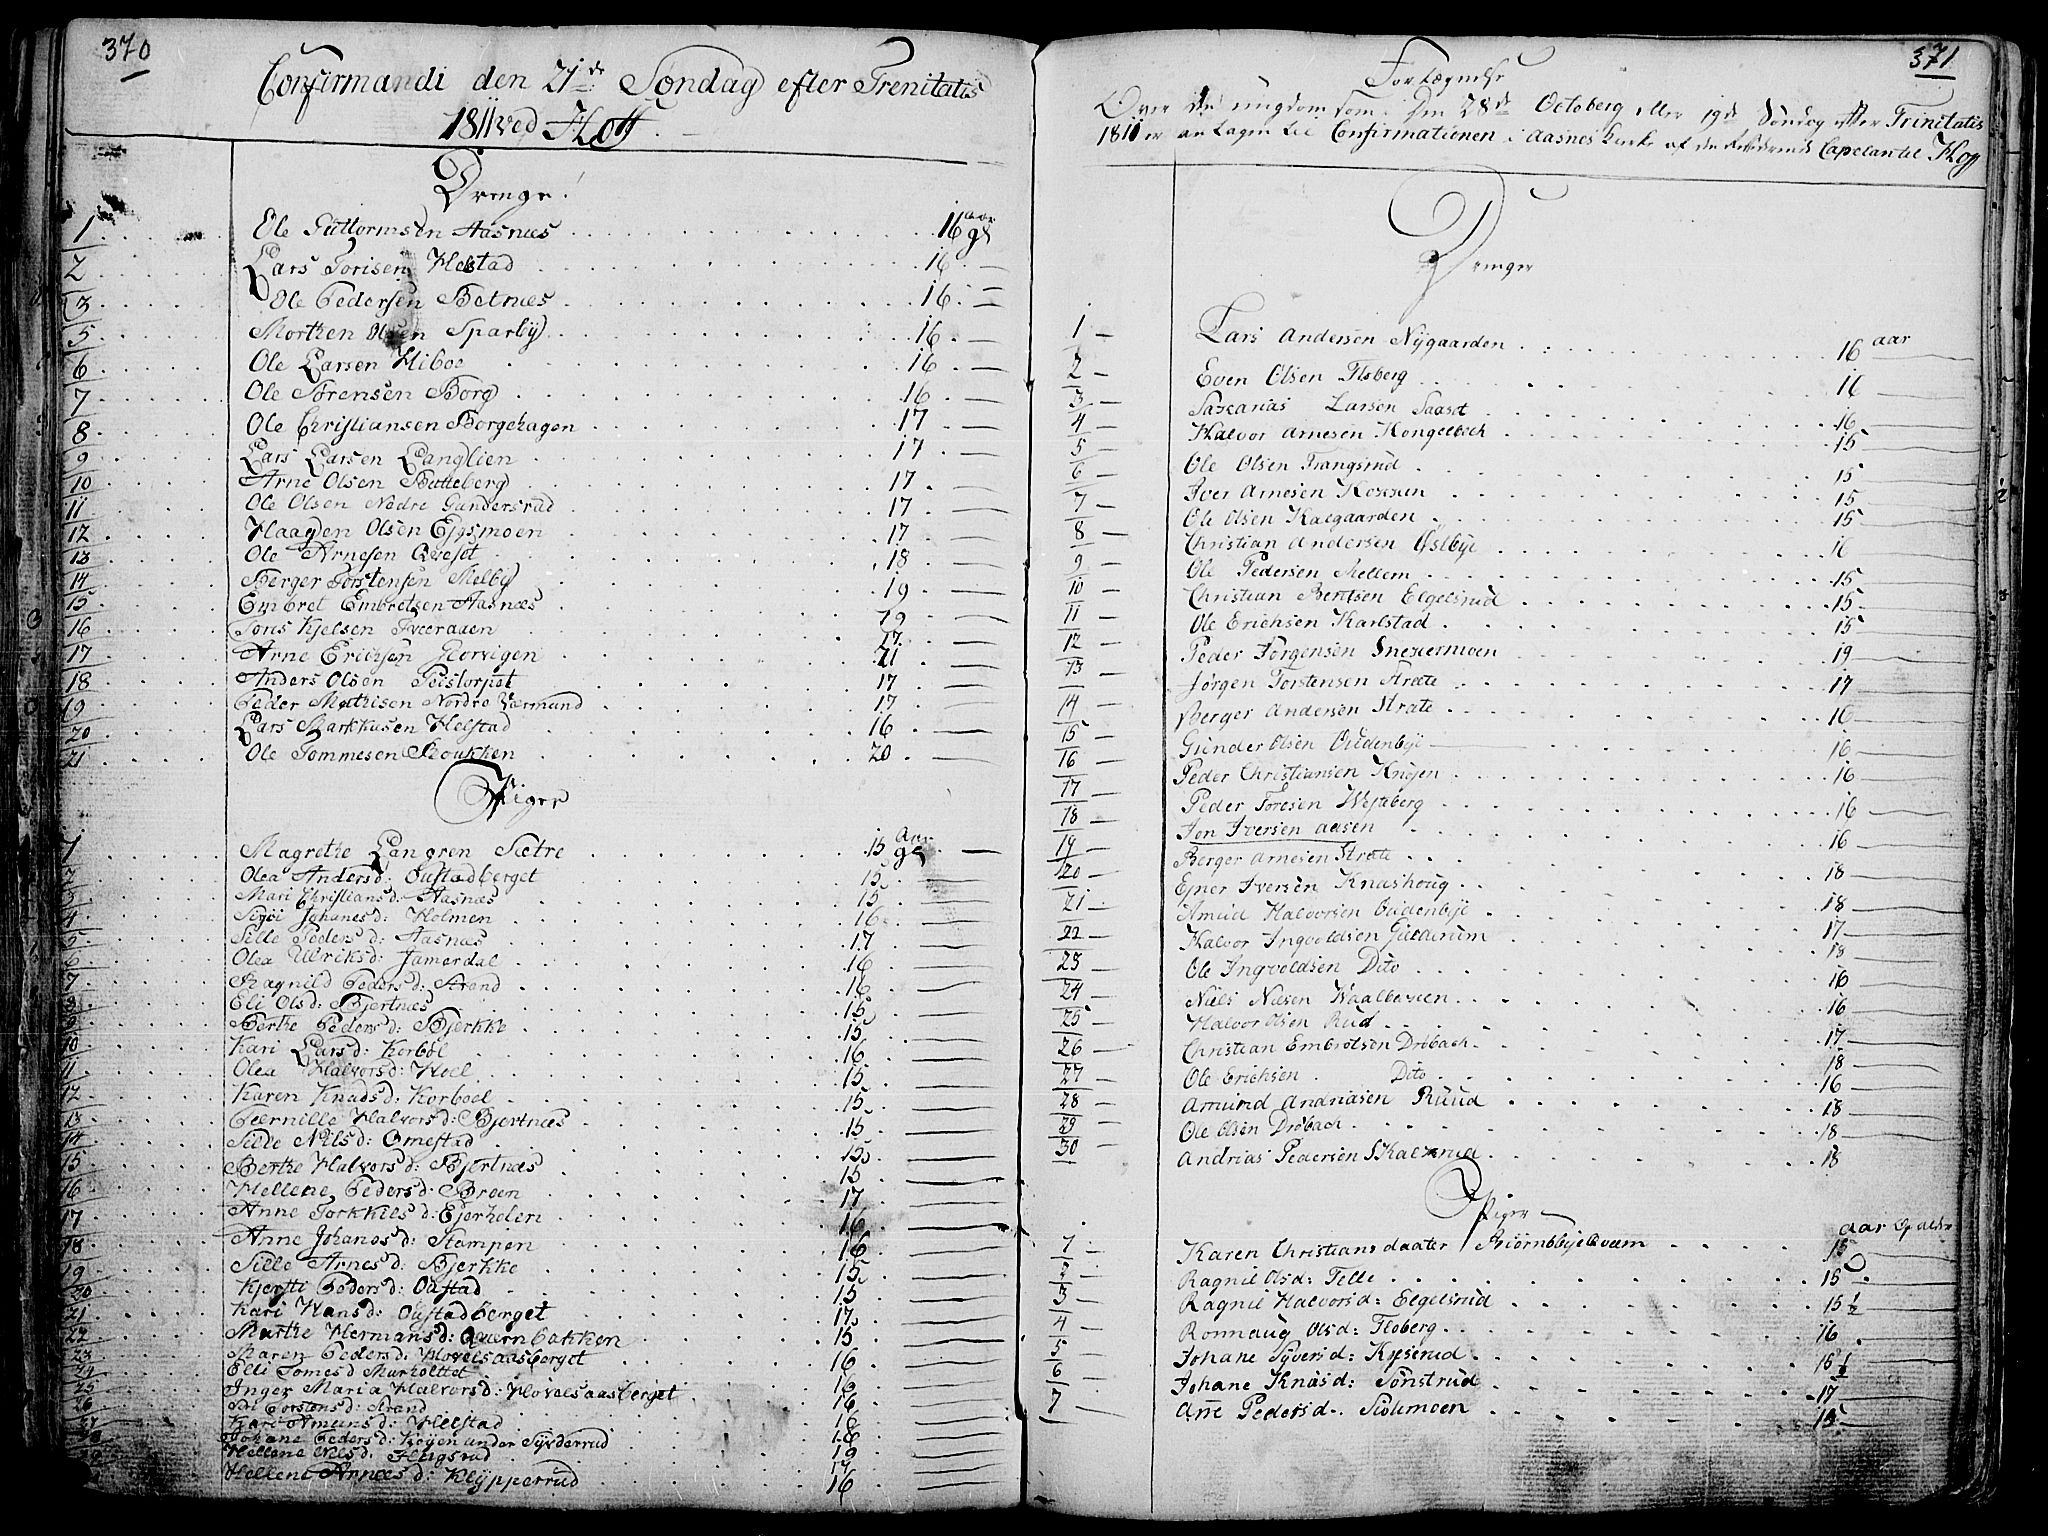 370
Confirmandi den 21de Søndag efter Trenitatis
1811 ved Hoff
Drenge
1 Ole Guttormsen Aasnæs 16 aar gl
2 Lars Torisen Helstad 16
3 Ole Pedersen Betnæs 16
5 Morthen Olsen Sparby 16
6 Ole Larsen Hiboe 16
7 Ole Sørensen Borg 16
8 Ole Christiansen Borgehagen 17
9 Lars Larsen Langlien 17
10 Arne Olsen Butteberg 17
11 Ole Olsen Nødre Gundersrud 17
12 Haagen Olsen Ejgsmoen 17
13 Ole Arnesen Qveset 18
14 Berger Torstensen Melby 19
15 Embret Embretsen Aasnæs 19
16 Jens Kjelsen Tveraaen 17
17 Arne Erichsen Gjorvigen 21
18 Anders Olsen Peistorpet 17
19 Peder Mathisen Nordre Værmund 17
20 Lars Markkusen Helstad 16
21 Ole Tommesen Stoukken 20
Piger
1 Magrethe Langren Sætre 15 Aar gl
2 Olea Andersd: Oustadberget 15
3 Mari Christiansd: Aasnæs 15
4 Sigri Johanesd: Holmen 16
5 Sille Pedersd: Aasnæs 17
6 Olea Ulriksd: Jamerdal 16
7 Ragnild Pedersd: Strand 16
8 Eli Olsd: Bjertnæs 15
9 Berthe Pedersd: Bjerkke 15
10 Kari Larsd: Korbøl 16
11 Olea Halvorsd: Hoel 15
12 Karen Knudsd: Korboel 15
13 Pernille Halvorsd: Bjertnæs 15
14 Sille Nilsd: Omestad 15
15 Berthe Halvorsd: Bjertnæs 15
16 Hellene Pedersd: Broen 17
17 Anne Torkkilsd: Ejerhelen 16
18 Anne Johanesd: Stampen 16
19 Sille Arnesd: Bjerkke 15
20 Kjersti Pedersd: Oustad 15
21 Kari Hansd: Oustadberget 17
22 Marthe Hermansd: Quernbakken 15
23 Maren Pedersd: Hovelsaasberget 16
24 Elli Tomesd Murholttet 16
25 Inger Maria Halvorsd: Hovelsaasberget 16
26 Torstensd: Strand 18
Kari Amunsd: Helstad 18
Johane Pedersd: Køyen under Syvderrud 19
Hellene Nilsd: Hugsrud 17
Hellene Arnesd: Klypperrud 16
371
Fortegnelse
Over de ungdom som den 28de Octoberg eller 19de Søndag efter Trinitatis
1811 er antagen til Confirmationen i Aasnes Kirke af den Capelan til Hoff
Drenger
1 Lars Andersen Nygaarden 16 aar
2 Even Olsen Flsberg 16
3 Saxarias Larsen Saaset 16
4 Halvor Arnesen Kongelbech 15
5 Ole Olsen Trangsrud 15
6 Iver Arnesen Koxxen 15
7 Ole Olsen Kalgaarden 15
8 Christian Andersen Østbye 16
9 Ole Pedersen Mellem 15
10 Christian Bentsen Elgelsrud 15
11 Ole Erichsen Karlstad 15
12 Peder Jørgensen Snekermoen 19
13 Jørgen Torstensen Strate 17
14 Berger Andersen Strate 16
15 Gunder Olsen Oudenbye 16
16 Peder Christiansen Knøjen 16
17 Peder Toresen Westberg 16
18 Jon Iversen aasen 16
19 Berger Arnesen Strate
20 Ejner Iversen Knashoug 18
21 Amud Halvorsen Oudenbye 18
22 Halvor Ingvoldsen Gulderum 17
23 Ole Ingvoldsen Dito 18
24 Niels Nilsen Waalbakken 16
25 Halvor Olsen Rud 16
26 Christian Embretsen Drøbach 17
27 Ole Erichsen Dito 18
28 Amund Andriasen Ruud 16
29 Ole Olsen Drøbach 18
30 Andrias Pedersen Skalkrud 18
18
Piger
1 Karen Christians daater Biørnebyekvern 15 aar og alder
2 Ragnil Olsd: Telle 15
3 Ragnil Halvorsd: Elgelsrud 15 1/2
4 Ronnaug Olsd: Floberg 16
5 Johane Syversd: Kjeserud 16 1/2
6 Johane Knusd: Sønstrud 17
7 Ane Pedersd: Stolmoen 15